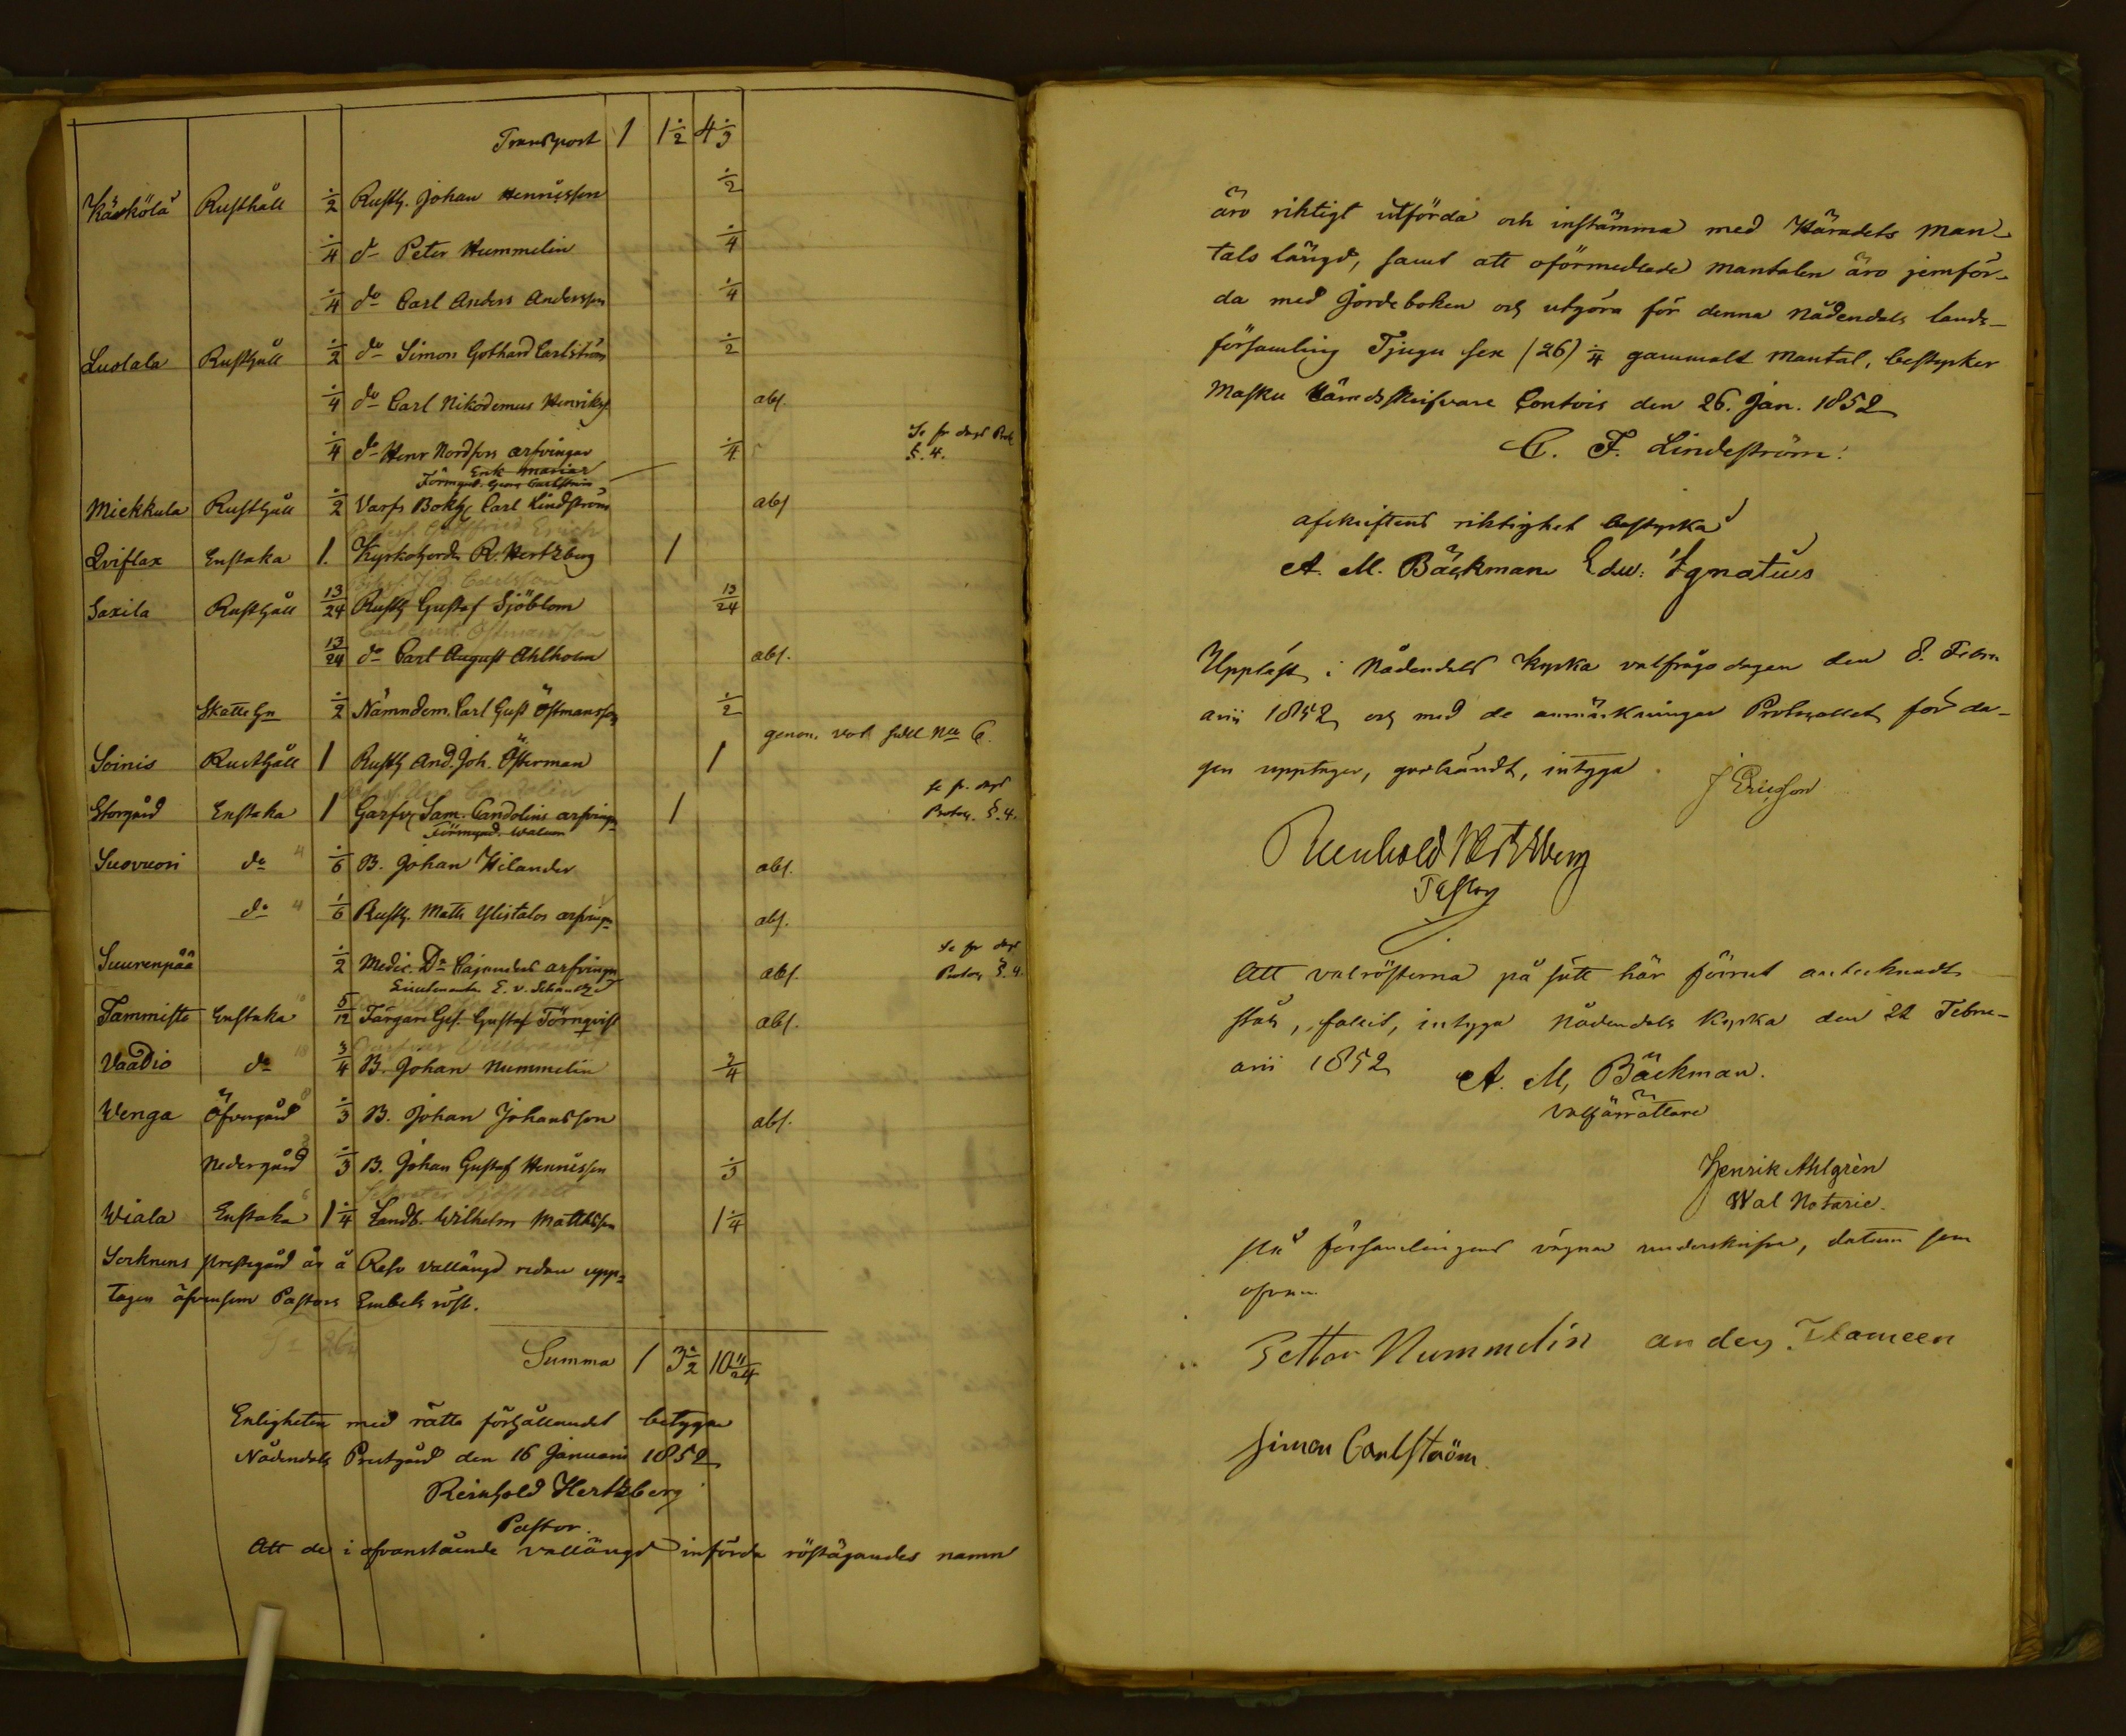 Transport 1 1 1/2 4 1/3
Käkölä Rusthåll 1/2 Rusth. Johan Hennisson 1/2
1/4 do Peter Hummelin 1/4
1/4 do Carl Anders Andersson 1/4
Luolala Rusthåll 1/2 do Simon Gothard Carlström 1/2
1/4 do Carl Nikodemus Henriks. abs.
1/4 do Henr Nordfors arfvingar 1/4 Se pr dags Prot
Erik Mariæ §. 4.
Förmynd. Georg Carlström
Miekkula Rusthåll 1/2 Varfs Bokh. Carl Lindström abs
Gottfried Erich
Qviflax Enstaka 1. Kyrkoherd. R. Hertzberg 1
Carlsson
Saxila Rusthåll 13/24 Rusth Gustaf Sjöblom 13/24
Carl Gust. Östmansson
13/24 do Carl August Ahlholm abs.
Skatte hn 1/2 Nämndem. Carl Gust Östmansson 1/2
Soinis Rusthåll 1 Rusth And. Joh. Österman 1 genom vot sedl No 6.
Candolin
Storgård Enstaka 1 Garfv. Sam. Candolins arfving. 1 se pr. dags
Förmynd. Walum Protoc. §. 4.
Suovuori do 4 1/6 B. Johan Hilander abs.
do 4 1/6 Rusth. Matts Ylistalos arfving. abs.
Suurenpää 1/2 Medic. Dr Cajanders arfving. abs. Se pr dags
Lieutenanten E. v. Schantz Protoc §. 4.
Tammisto Enstaka 5/12 Färgare Ges. Gustaf Törnqvist abs.
Willbrandt
Vaadio do 18 3/4 B. Johan Nummelin 3/4
Wenga Öfvergård 8 1/3 B. Johan Johansson abs.
Nedergård 1/3 B. Johan Gustaf Hennisson 1/3
Wiala Enstaka 6 1 1/4 Landb. Wilhelm Mattsson 1 1/4
Socknens prestgård är å Reso vallängd redan upp=
tagen äfvensom Pastors Embets röst.
Summa 1 3 1/2 10 11/24
Enligheten med rätta förhållandet betygar
Nådendals Prestgård den 16 Januarii 1852
Reinhold Hertzberg
Pastor.
Att de i ofvanstående vallängd införda röstägandes namn
äro riktigt utförda och instämma med Häradets Man-
tals längd, samt att oförmedlade mantalen äro jemför-
da med Jordeboken och utgöra för denna Nådendals lands-
församling Tjugu sex (26) 1/4 gammalt Mantal, bestyrker
Masku Häradsskrifvare Contoir den 26. Jan. 1852
C. F. Lindeström.
Afskriftens riktighet bestyrka
A. M. Bäckman Edw: Ignatius
Uppläst i Nådendals kyrka valfrågodagen den 8. Febru
arii 1852 och med de anmärkningar Protocollet för da-
gen upptager, godkändt, intyga J Ericsson
Reinhold Hertzberg
Pastor
Att valrösterna på sätt här förrut antecknadt
står, fallit, intyga Nådendals Kyrka den 22 Febru-
arii 1852 A. M. Bäckman.
Valförrättare
Henrik Ahlgrèn
Wal Notarie.
På församlingens vägnar underskrifva, datum som
ofvan
Petter Nummelin anders Flameen
Simon Carlström